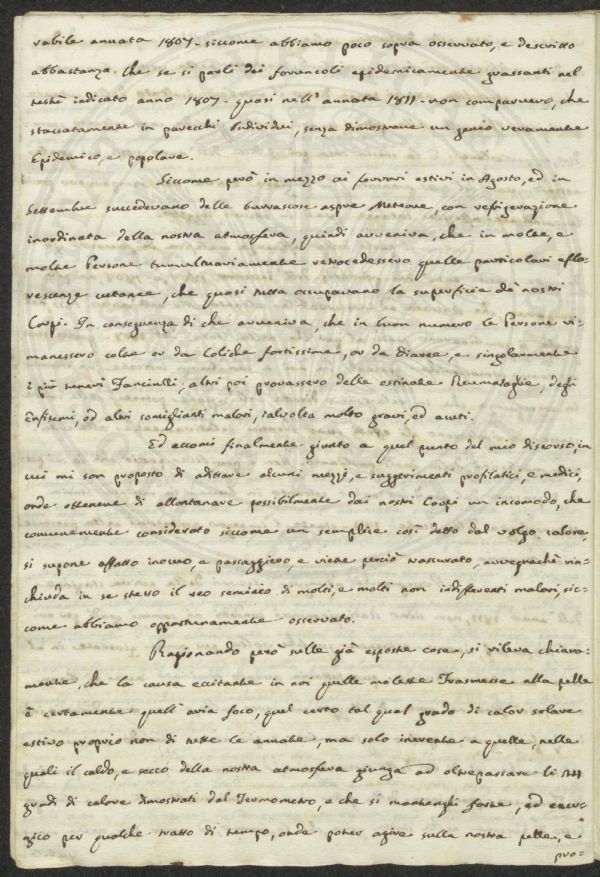 rabile annata 1807. siccome abbiamo poco sopra osservato, e descritto
abbastanza. Che se si parli dei foruncoli epidemicamente grassanti nel
testè indicato anno 1807. quasi nell'annata 1811. non comparvero, che
staccatamente in parecchi Individui, senza dimostrare un genio veramente
Epidemico, e popolare.
Siccome però in mezzo ai fervori estivi in Agosto, ed in
Settembre succedevano delle burrascose aspre Meteore, con refrigerazione
inordinata della nostra atmosfera, quindi avveniva, che in molte, e
molte Persone tumultuariamente retrocedessero quelle particolari efflo=
rescenze cutanee, che quasi tutta occupavano la superficie de nostri
Corpi. In conseguenza di che avveniva, che in buon numero le Persone ri=
manessero colte or da Coliche fortissime, or da diaree, e singolarmente
i più teneri Fanciulli; altri poi provassero delle ostinate Reumataglie, degli
Enfisemi, od altri somiglianti malori, talvolta molto gravi, ed acuti.
Ed eccomi finalmente giunto a quel punto del mio discorso, in
cui mi son proposto di additare alcuni mezzi, e suggerimenti profilatici, e medici,
onde ottenere di allontanare possibilmente dai nostri Corpi un incomodo, che
comunemente considerato siccome un semplice così detto dal volgo calore
si supone affatto inocuo, e passaggiero, e viene perciò trascurato, avvegnachè rin=
chiuda in se stesso il reo seminio di molti, e molti non indifferenti malori, sic=
come abbiamo opportunamente osservato.
Ragionando però sulle già esposte cose, si rileva chiara=
mente, che la causa eccitante in noi quelle moleste Trasmesse alla pelle
è certamente quell'aria foco, quel certo tal qual grado di calor solare
estivo proprio non di tutte le annate, ma solo inerente a quelle, nelle
quali il caldo, e secco della nostra atmosfera giunga ad oltrepassare li
gradi di calore dimostrati dal Termometro, e che si mantenghi forte, ed ener=
gico per qualche tratto di tempo, onde poter agire sulla nostra pelle, e
pro=